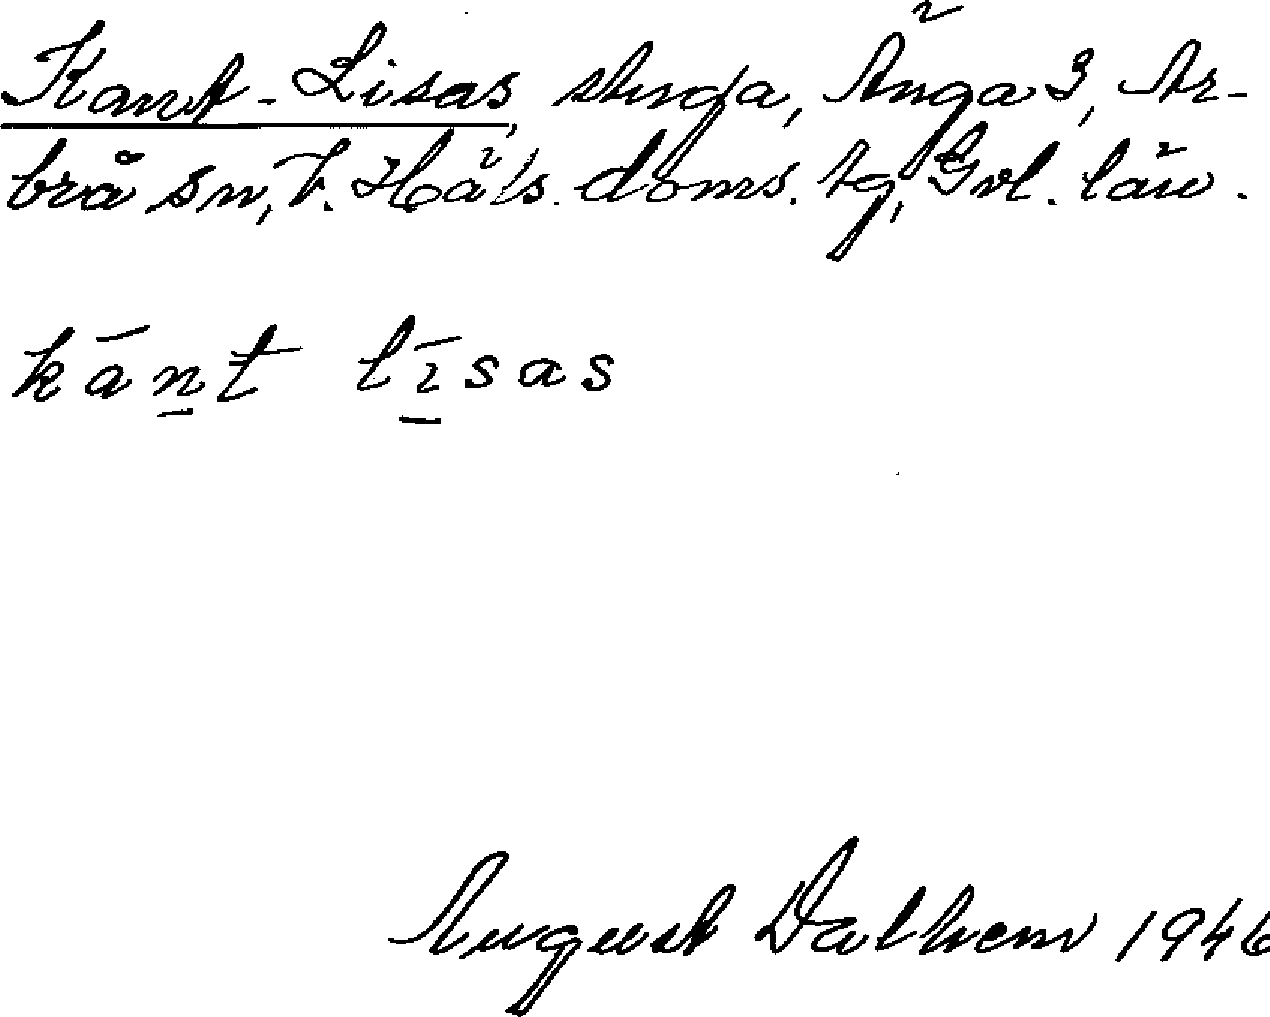 Kant-Lisas, stuga, Änga 3, Ar-
brå sn, V. Häls. doms. tg, Gvl. län.
kánt līsas
August Dalhem 1946